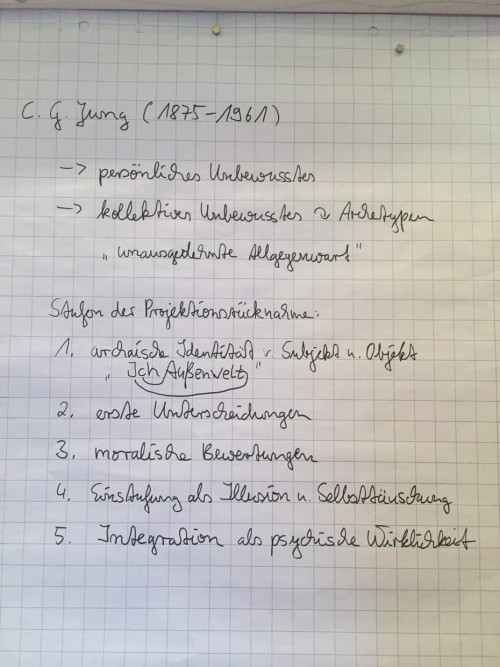 C. G. Jung (1875-1961)
-> persönliches Unbewusstes
-> kollektives Unbewusstes ~ Archetypen
„unausgedehnte Allgegenwart"
Stufen der Projektionsrücknahme:
1. archaische Identität v. Subjekt u. Objekt
„Ich Außenwelt"
2. erste Unterscheidungen
3. moralische Bewertungen
4. Einstufung als Illusion u. Selbsttäuschung
5. Integration als psychische Wirklichkeit